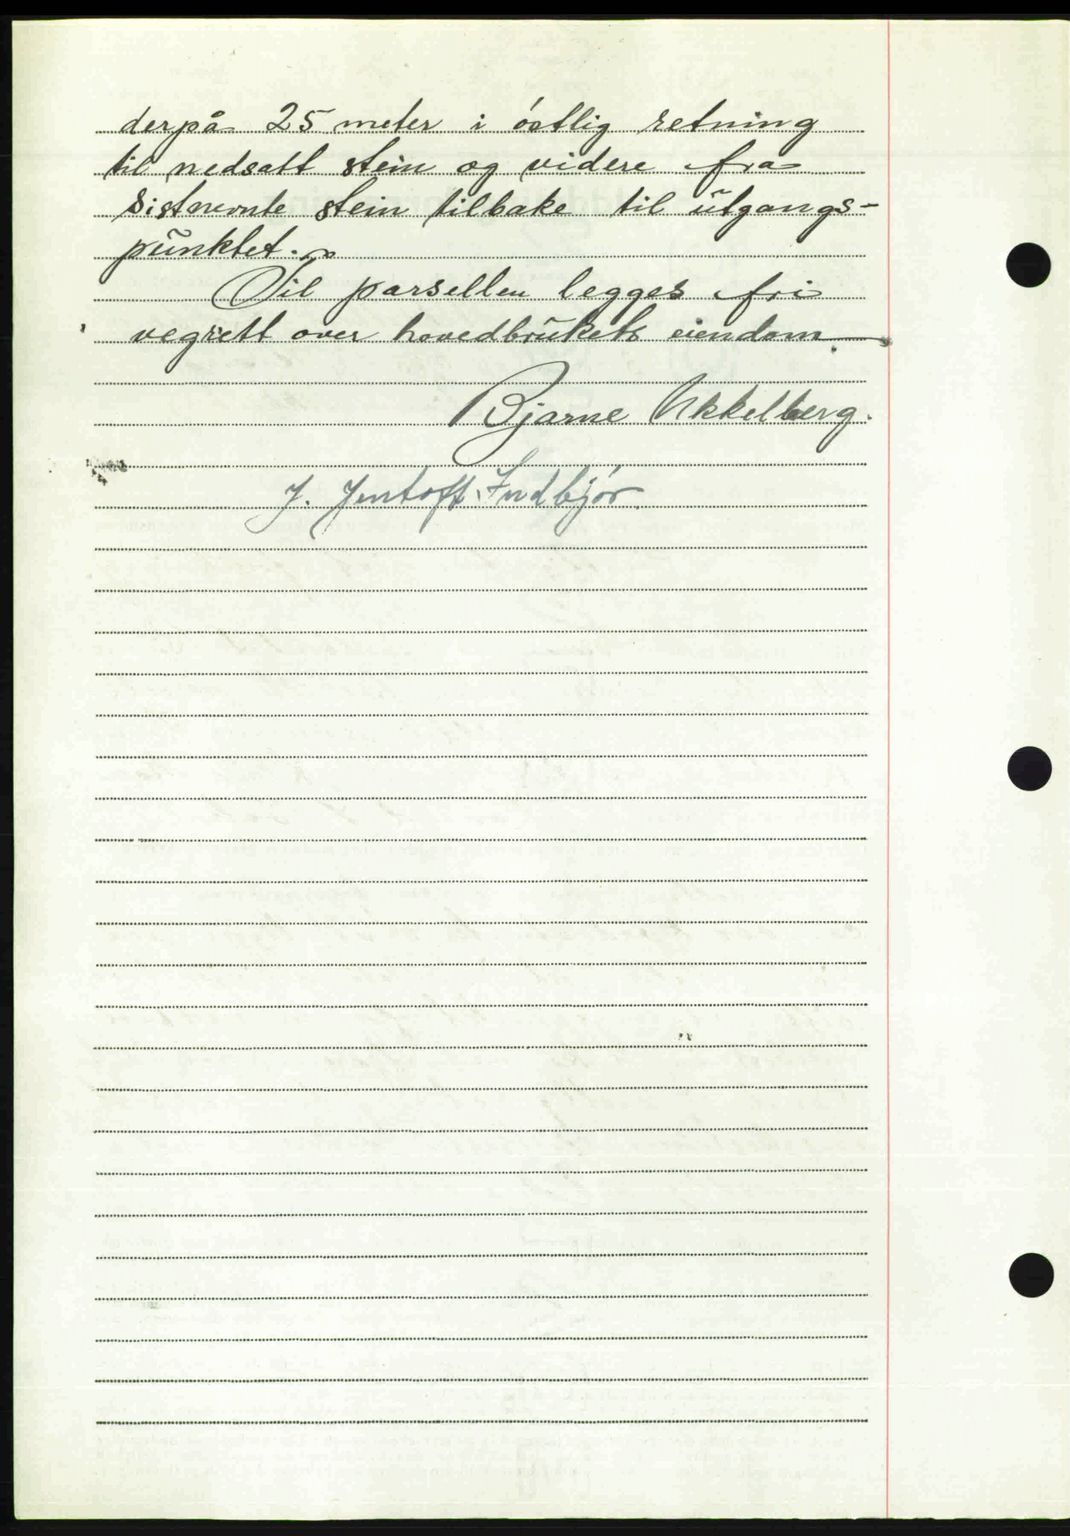 derpå 25 meter i östlig retning
til nedsatt stein og videre fra
sistnevnte stein tilbake til utgangs-
punktet.
Til parsellen legges fri
vegrett over hovedbrukets eiendom
Bjarne Ukkelberg.
J. Jentoft Indbjör